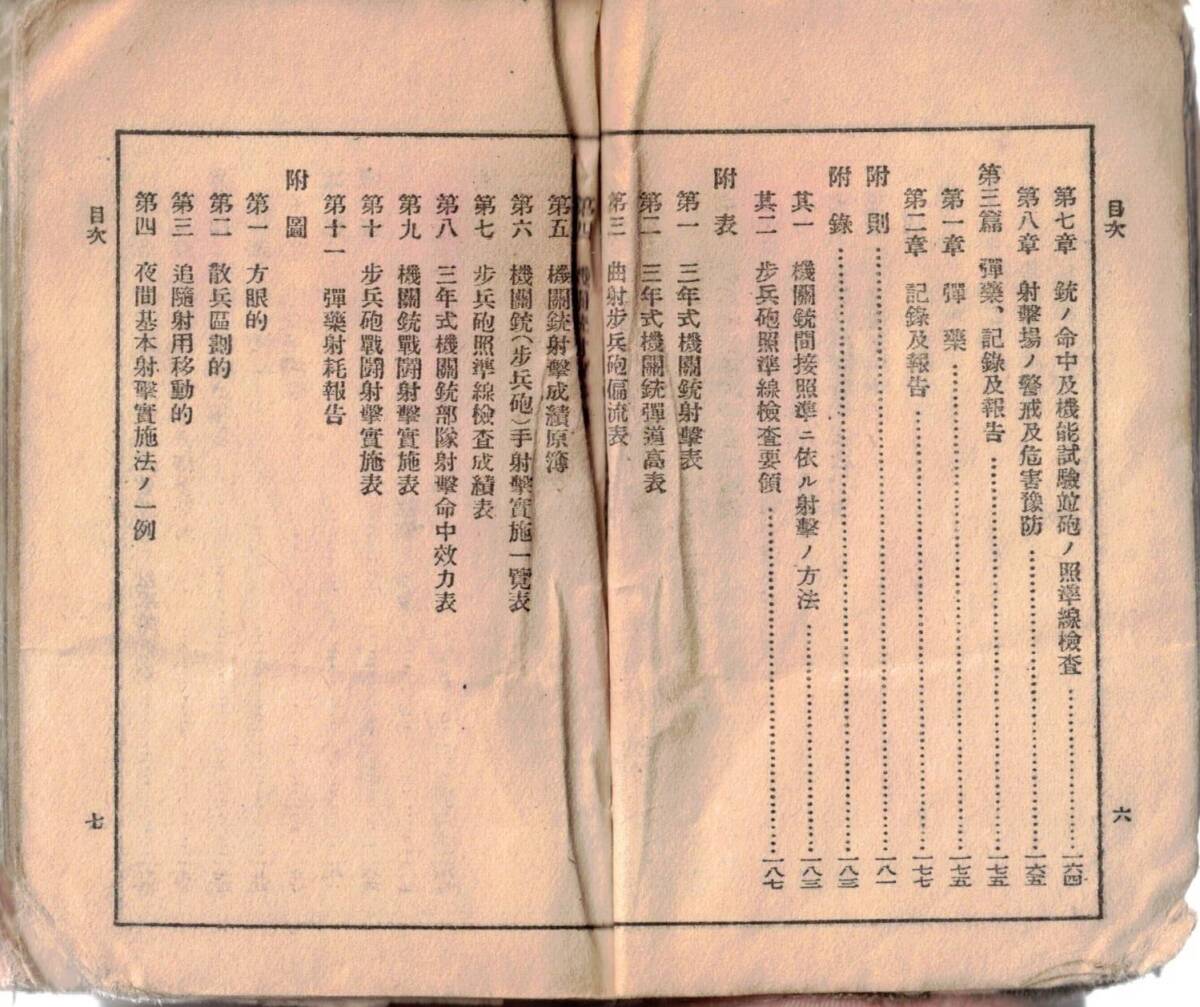 目次
六
第七章 銃ノ命中及機能試驗竝砲ノ照準線檢査…一六四
第八章 射擊場ノ警戒及危害豫防…一六五
第三篇 彈藥、記錄及報告…一七五
第一章 彈藥…一七五
第二章 記錄及報告…一七七
附則…一八一
附錄…一八三
其一 機關銃間接照準ニ依ル射擊ノ方法…一八三
其二 步兵砲照準線檢査要領…一八七
附表
第一 三年式機關銃射擊表
第二 三年式機關銃彈道高表
第三 曲射步兵砲偏流表
第四
第五 機關銃射擊成績原簿
第六 機關銃(步兵砲)手射擊實施一覽表
第七 步兵砲照準線檢査成績表
第八 三年式機關銃部隊射擊命中效力表
第九 機關銃戰鬪射擊實施表
第十 步兵砲戰鬪射擊實施表
第十一 彈藥射耗報告
附圖
第一 方眼的
第二 散兵區劃的
第三 追隨射用移動的
第四 夜間基本射擊實施法ノ一例
目次
七